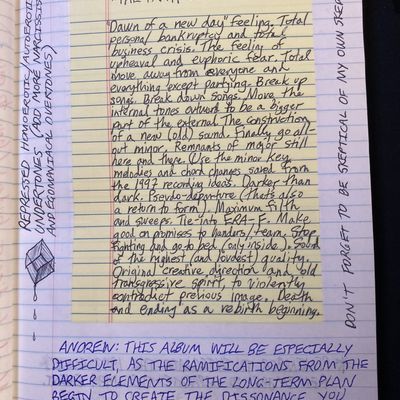 "Dawn of a new day" feeling. Total
personal bankruptcy and total
business crisis. The feeling of
upheaval and euphoric fear. Total
move away from everyone and
everything except partying. Break up
songs. Break down songs. Move the
internal tones outward to be a bigger
part of the external. The construction
of a new (old) sound. Finally go all-
out minor. Remnants of major still
here and there. Use the minor key
melodies and chord changes saved from
the 1997 recording ideas. Darker than
dark. Pseudo-departure (that's also
a return to form). Maximum filth
and sweeps. Tie-into ERA-F. Make
good on promises to /team. Stop
fighting and go to bed (only inside). Sound
of the highest (and loudest) quality.
Original creative direction and old
transgressive spirit, to violently
contradict previous image. Death
and ending as a rebirth beginning.
REPRESSED HOMOEROTIC/AUTOEROTIC
UNDERTONES (ADD MORE NARCISSIS
AND EGOMANIACAL OVERTONES)
DON'T FORGET TO BE SKEPTICAL OF MY OWN SKEP
ANDREW: THIS ALBUM WILL BE ESPECIALLY
DIFFICULT, AS THE RAMIFICATIONS FROM THE
DARKER ELEMENTS OF THE LONG-TERM PLAN
BEGIN TO CREATE THE DISSONANCE YOU